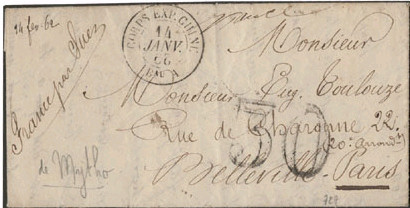 14 fev. 62
CORPS EXP. CHINE
14
JANV.
Bau A
France par Suez
Monsieur
Monsieur Eug. Toulouze
Rue de Charonne 22.
20e. arrondt
Belleville-Paris
30
de Mytho